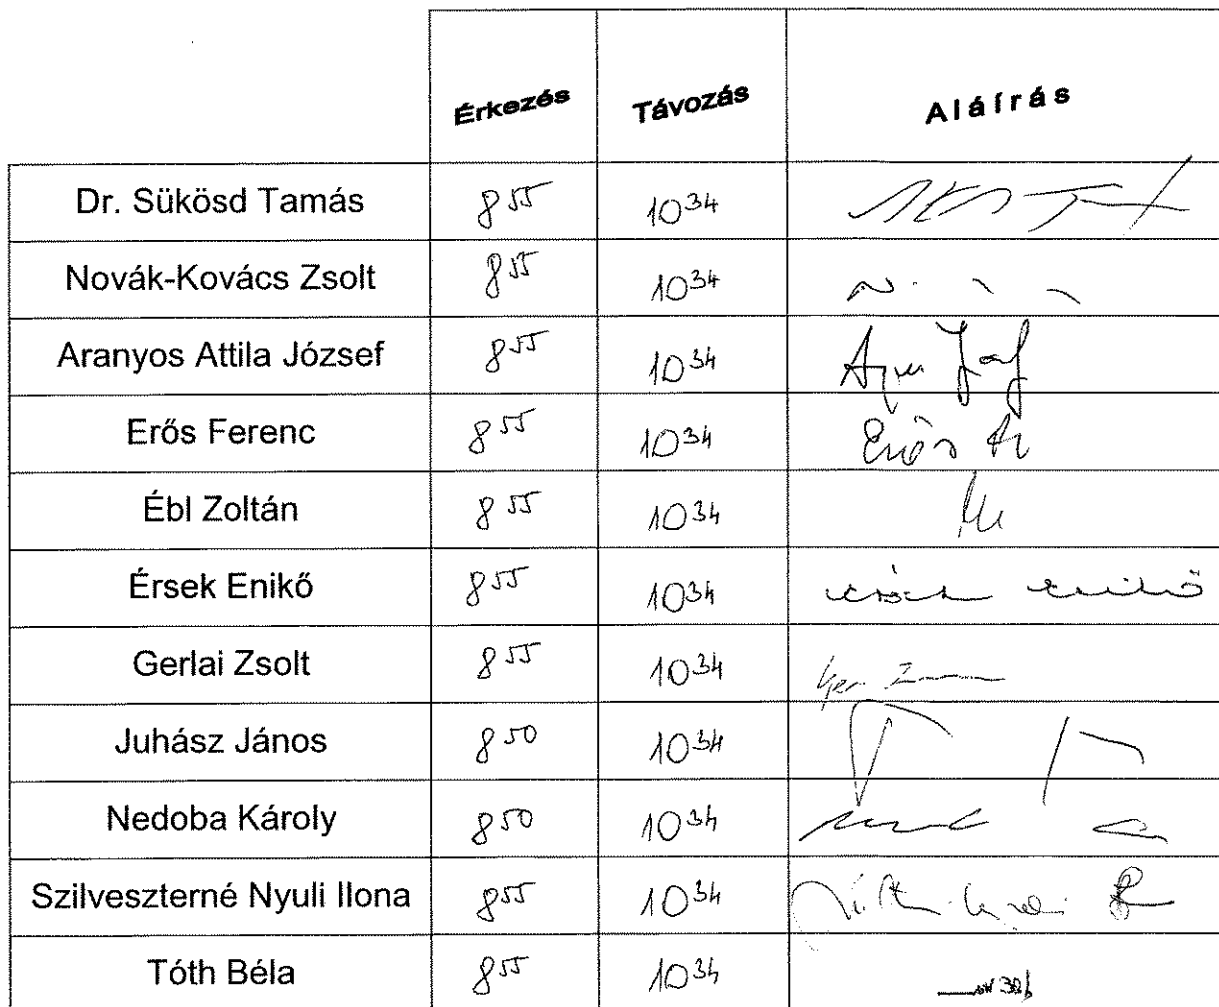 Érkezés Távozás Aláírás
Dr. Sükösd Tamás 8 55 10 34
Novák-Kovács Zsolt 8 55 10 34
Aranyos Attila József 8 55 10 34
Erős Ferenc 8 55 10 34 Erős
Ébl Zoltán 8 55 10 34
Érsek Enikő 8 55 10 34 Érsek Enikő
Gerlai Zsolt 8 55 10 34
Juhász János 8 50 10 34
Nedoba Károly 8 50 10 34
Szilveszterné Nyuli Ilona 8 55 10 34
Tóth Béla 8 55 10 34